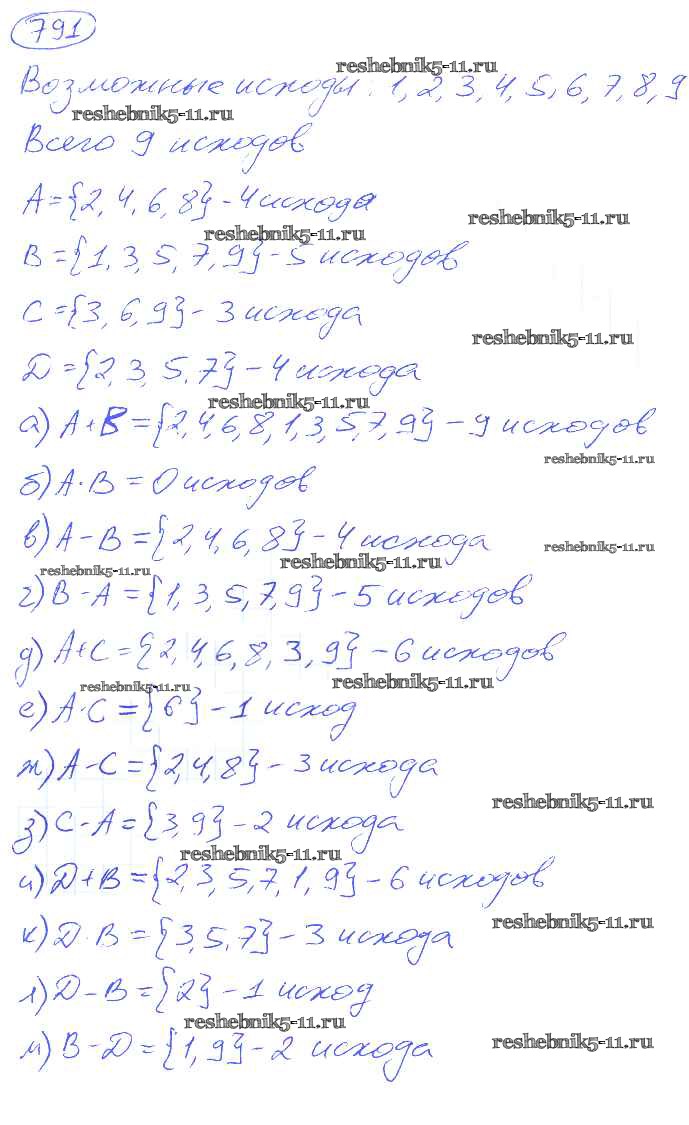 791
reshebnik5-11.ru
Возможные исходы: 1, 2, 3, 4, 5, 6, 7, 8, 9
reshebnik5-11.ru
Всего 9 исходов
A={2, 4, 6, 8} - 4 исхода
reshebnik5-11.ru
reshebnik5-11.ru
B={1, 3, 5, 7, 9} - 5 исходов
C={3, 6, 9} - 3 исхода
reshebnik5-11.ru
D={2, 3, 5, 7} - 4 исхода
reshebnik5-11.ru
а) A+B={2, 4, 6, 8, 1, 3, 5, 7, 9} - 9 исходов
reshebnik5-11.ru
б) A·B = 0 исходов
в) A-B={2, 4, 6, 8} - 4 исхода
reshebnik5-11.ru
reshebnik5-11.ru
reshebnik5-11.ru
г) B-A={1, 3, 5, 7, 9} - 5 исходов
д) A+C={2, 4, 6, 8, 3, 9} - 6 исходов
reshebnik5-11.ru
reshebnik5-11.ru
е) A·C={6} - 1 исход
ж) A-C={2, 4, 8} - 3 исхода
reshebnik5-11.ru
з) C-A={3, 9} - 2 исхода
reshebnik5-11.ru
и) D+B={2, 3, 5, 7, 1, 9} - 6 исходов
reshebnik5-11.ru
к) D·B={3, 5, 7} - 3 исхода
л) D-B={2} - 1 исход
reshebnik5-11.ru
reshebnik5-11.ru
м) B-D={1, 9} - 2 исхода